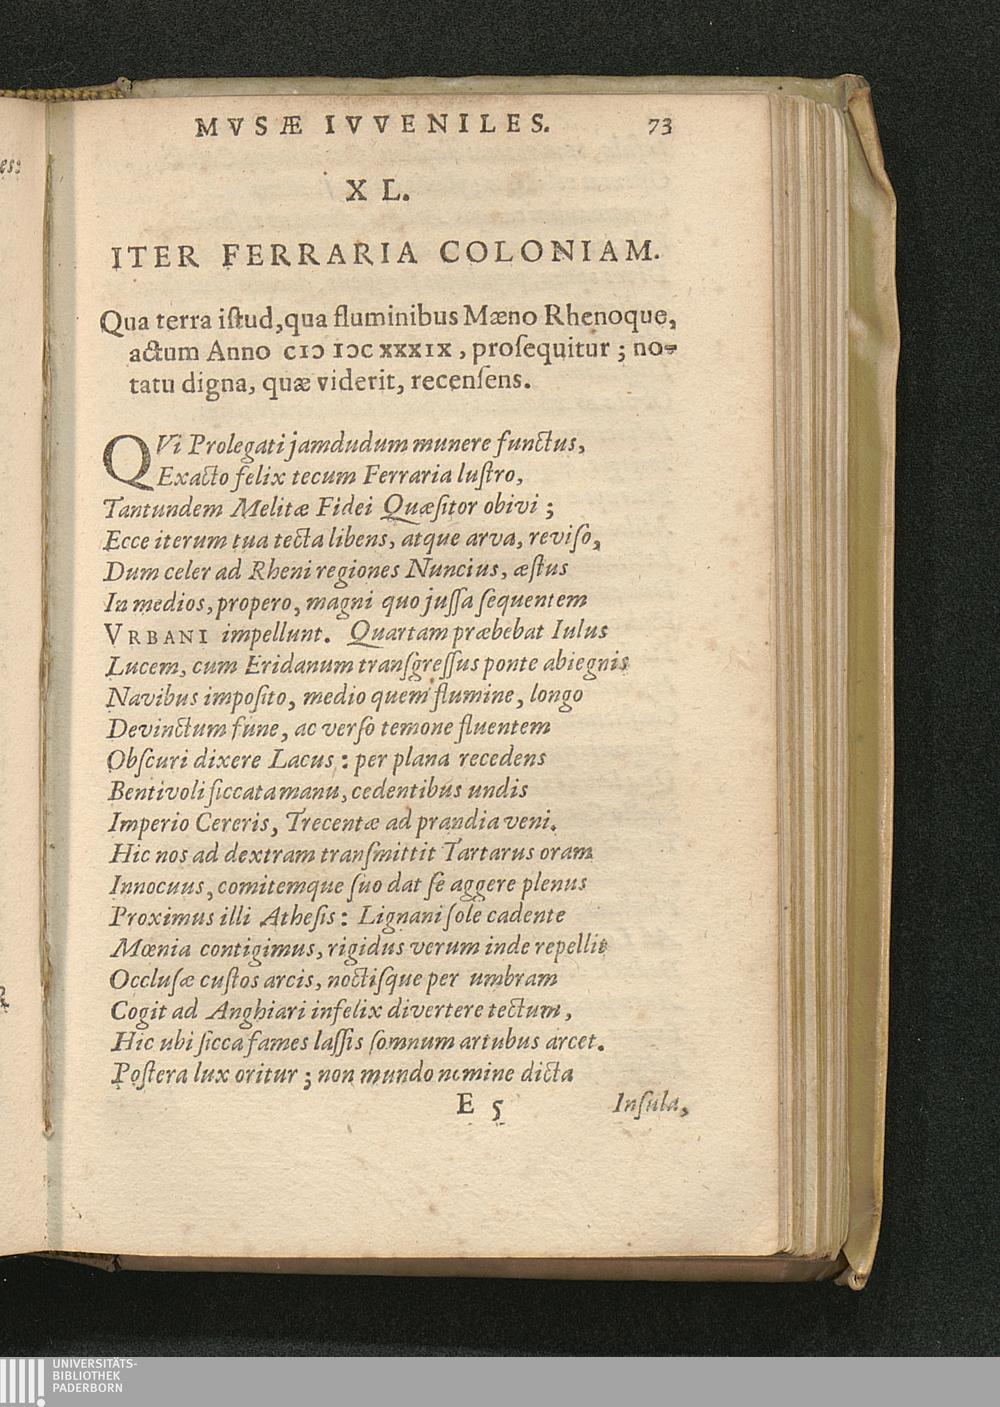 es:
MVSÆ IVVENILES. 73
XL.
ITER FERRARIA COLONIAM.
Qua terra iſtud, qua fluminibus Mæno Rhenoque,
actum Anno CIↃ IↃC XXXIX, proſequitur; no-
tatu digna, quæ viderit, recenſens.
QVi Prolegati jamdudum munere functus,
Exacto felix tecum Ferraria luſtro,
Tantundem Melitæ Fidei Quæſitor obivi;
Ecce iterum tua tecta libens, atque arva, reviſo,
Dum celer ad Rheni regiones Nuncius, æſtus
In medios, propero, magni quo juſſa ſequentem
VRBANI impellunt. Quartam præbebat Iulus
Lucem, cum Eridanum tranſgreſſus ponte abiegnis
Navibus impoſito, medio quem flumine, longo
Devinctum fune, ac verſo temone fluentem
Obſcuri dixere Lacus: per plana recedens
Bentivoli ſiccata manu, cedentibus undis
Imperio Cereris, Trecentæ ad prandia veni.
Hic nos ad dextram tranſmittit Tartarus oram
Innocuus, comitemque ſuo dat ſe aggere plenus
Proximus illi Atheſis: Lignani ſole cadente
Mœnia contigimus, rigidus verum inde repellit
Occluſæ cuſtos arcis, noctiſque per umbram
Cogit ad Anghiari infelix divertere tectum,
Hic ubi ſicca fames laſſis ſomnum artubus arcet.
Poſtera lux oritur; non mundo nomine dicta
E 5 Inſula,
UNIVERSITÄTS-
BIBLIOTHEK
PADERBORN